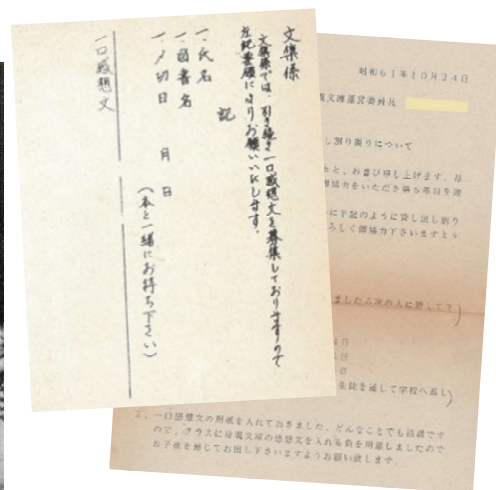 文集様
文集では、引き続き一口感想文を募集しておりますので
左記要領によりお願いいたします。
記
一、氏名
一、図書名
一、〆切日　月　日
(本と一緒にお持ち下さい)
一口感想文
昭和61年10月24日
親文庫運営委員長
し割り振りについて
と、お喜び申し上げます。母
御協力をいただき第5年目を迎
に下記のように貸し出し割り
ろしく御協力下さいますよう
ましたら次の人に廻して下)
日
日
生徒を通して学校へ返し)
2、一口感想文の用紙を入れておきました、どんなことでも結構です
ので、クラスに母親文庫の感想文を入れる袋を用意しましたので
お子様を通じてお出し下さいますようお願い致します。